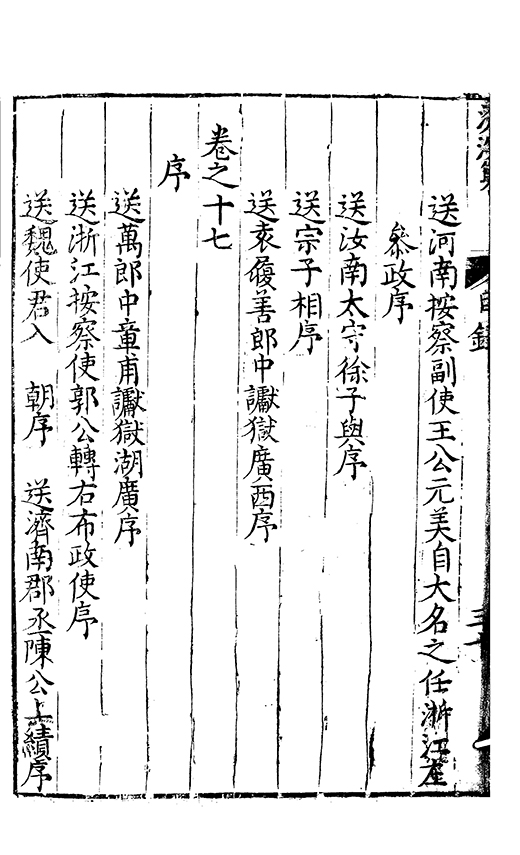 滄溟集 目錄
送河南按察副使王公元美自大名之任浙江左
叅政序
送汝南太守徐子與序
送宗子相序
送袁履善郎中讞獄廣西序
卷之十七
序
送萬郎中章甫讞獄湖廣序
送浙江按察使郭公轉右布政使序
送魏使君入　朝序　送濟南郡丞陳公上績序